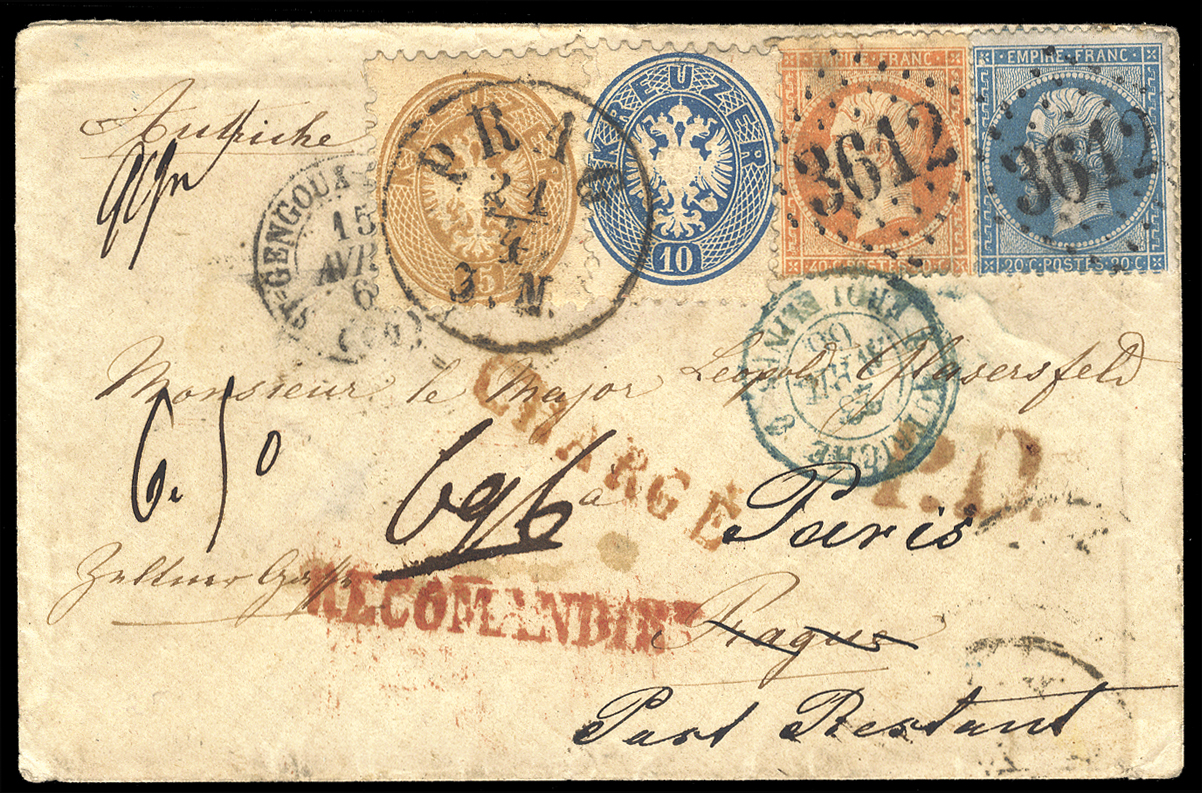 KREUZER
15
KREUZER
10
EMPIRE FRANC
40 C. POSTES 40 C.
EMPIRE FRANC
20 C. POSTES 20 C.
3612
3612
PRAG
21
4
3. N.
Autriche
ST-GENGOUX
15
AVR.
6
AUTRICHE
Monsieur le Major Leopold Glasersfeld
CHARGÉ
P.D.
6.50
696
a
Paris
RECOMANDIRT
Prague
Part Restant